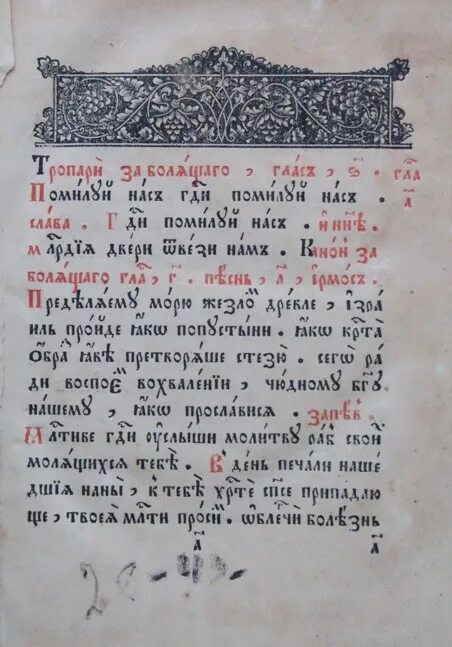 Тропарѝ за болѧ́щаго , гла́съ , ѕ҃ . гла̀
Поми́лꙋй на́съ гд҇и поми́лꙋй на́съ . а҃
сла́ва . Гд҇и поми́лꙋй на́съ . и҆ нн҃ѣ .
м҇рдїѧ две́ри ѿве́зи на́мъ . Кано́н за
болѧ́щаго гла̀ , г҃ . пѣ́снь , а҃ , і҆рмо́съ .
Предѣлѧ́емꙋ мо́рю жезло́м дре́вле , і҆зра́
иль про́йде ꙗ҆́кѡ попꙋсты́ни . ꙗ҆́кѡ крт҇а̀
ѻ҆́бра ꙗ҆́вѣ претворѧ́ше стезю̀ . сегѡ̀ ра́
ди воспое́м вохвале́нїи , чю́дномꙋ бг҃ꙋ
на́шемꙋ , ꙗ҆́кѡ просла́висѧ . запѣ́в .
М҇лтиве гд҇и ᲂу҆слы́ши моли́твꙋ ра́б свои́
молѧ́щихсѧ тебѣ̀ . В де́нь печа́ли наше́
дшїѧ наны̀ , к тебѣ̀ хрт҇ѐ сп҇се припада́ю
ще , твоеѧ̀ м҇лти про́сим . ѡ҆блегчѝ болѣ́знь
а҃ а҃